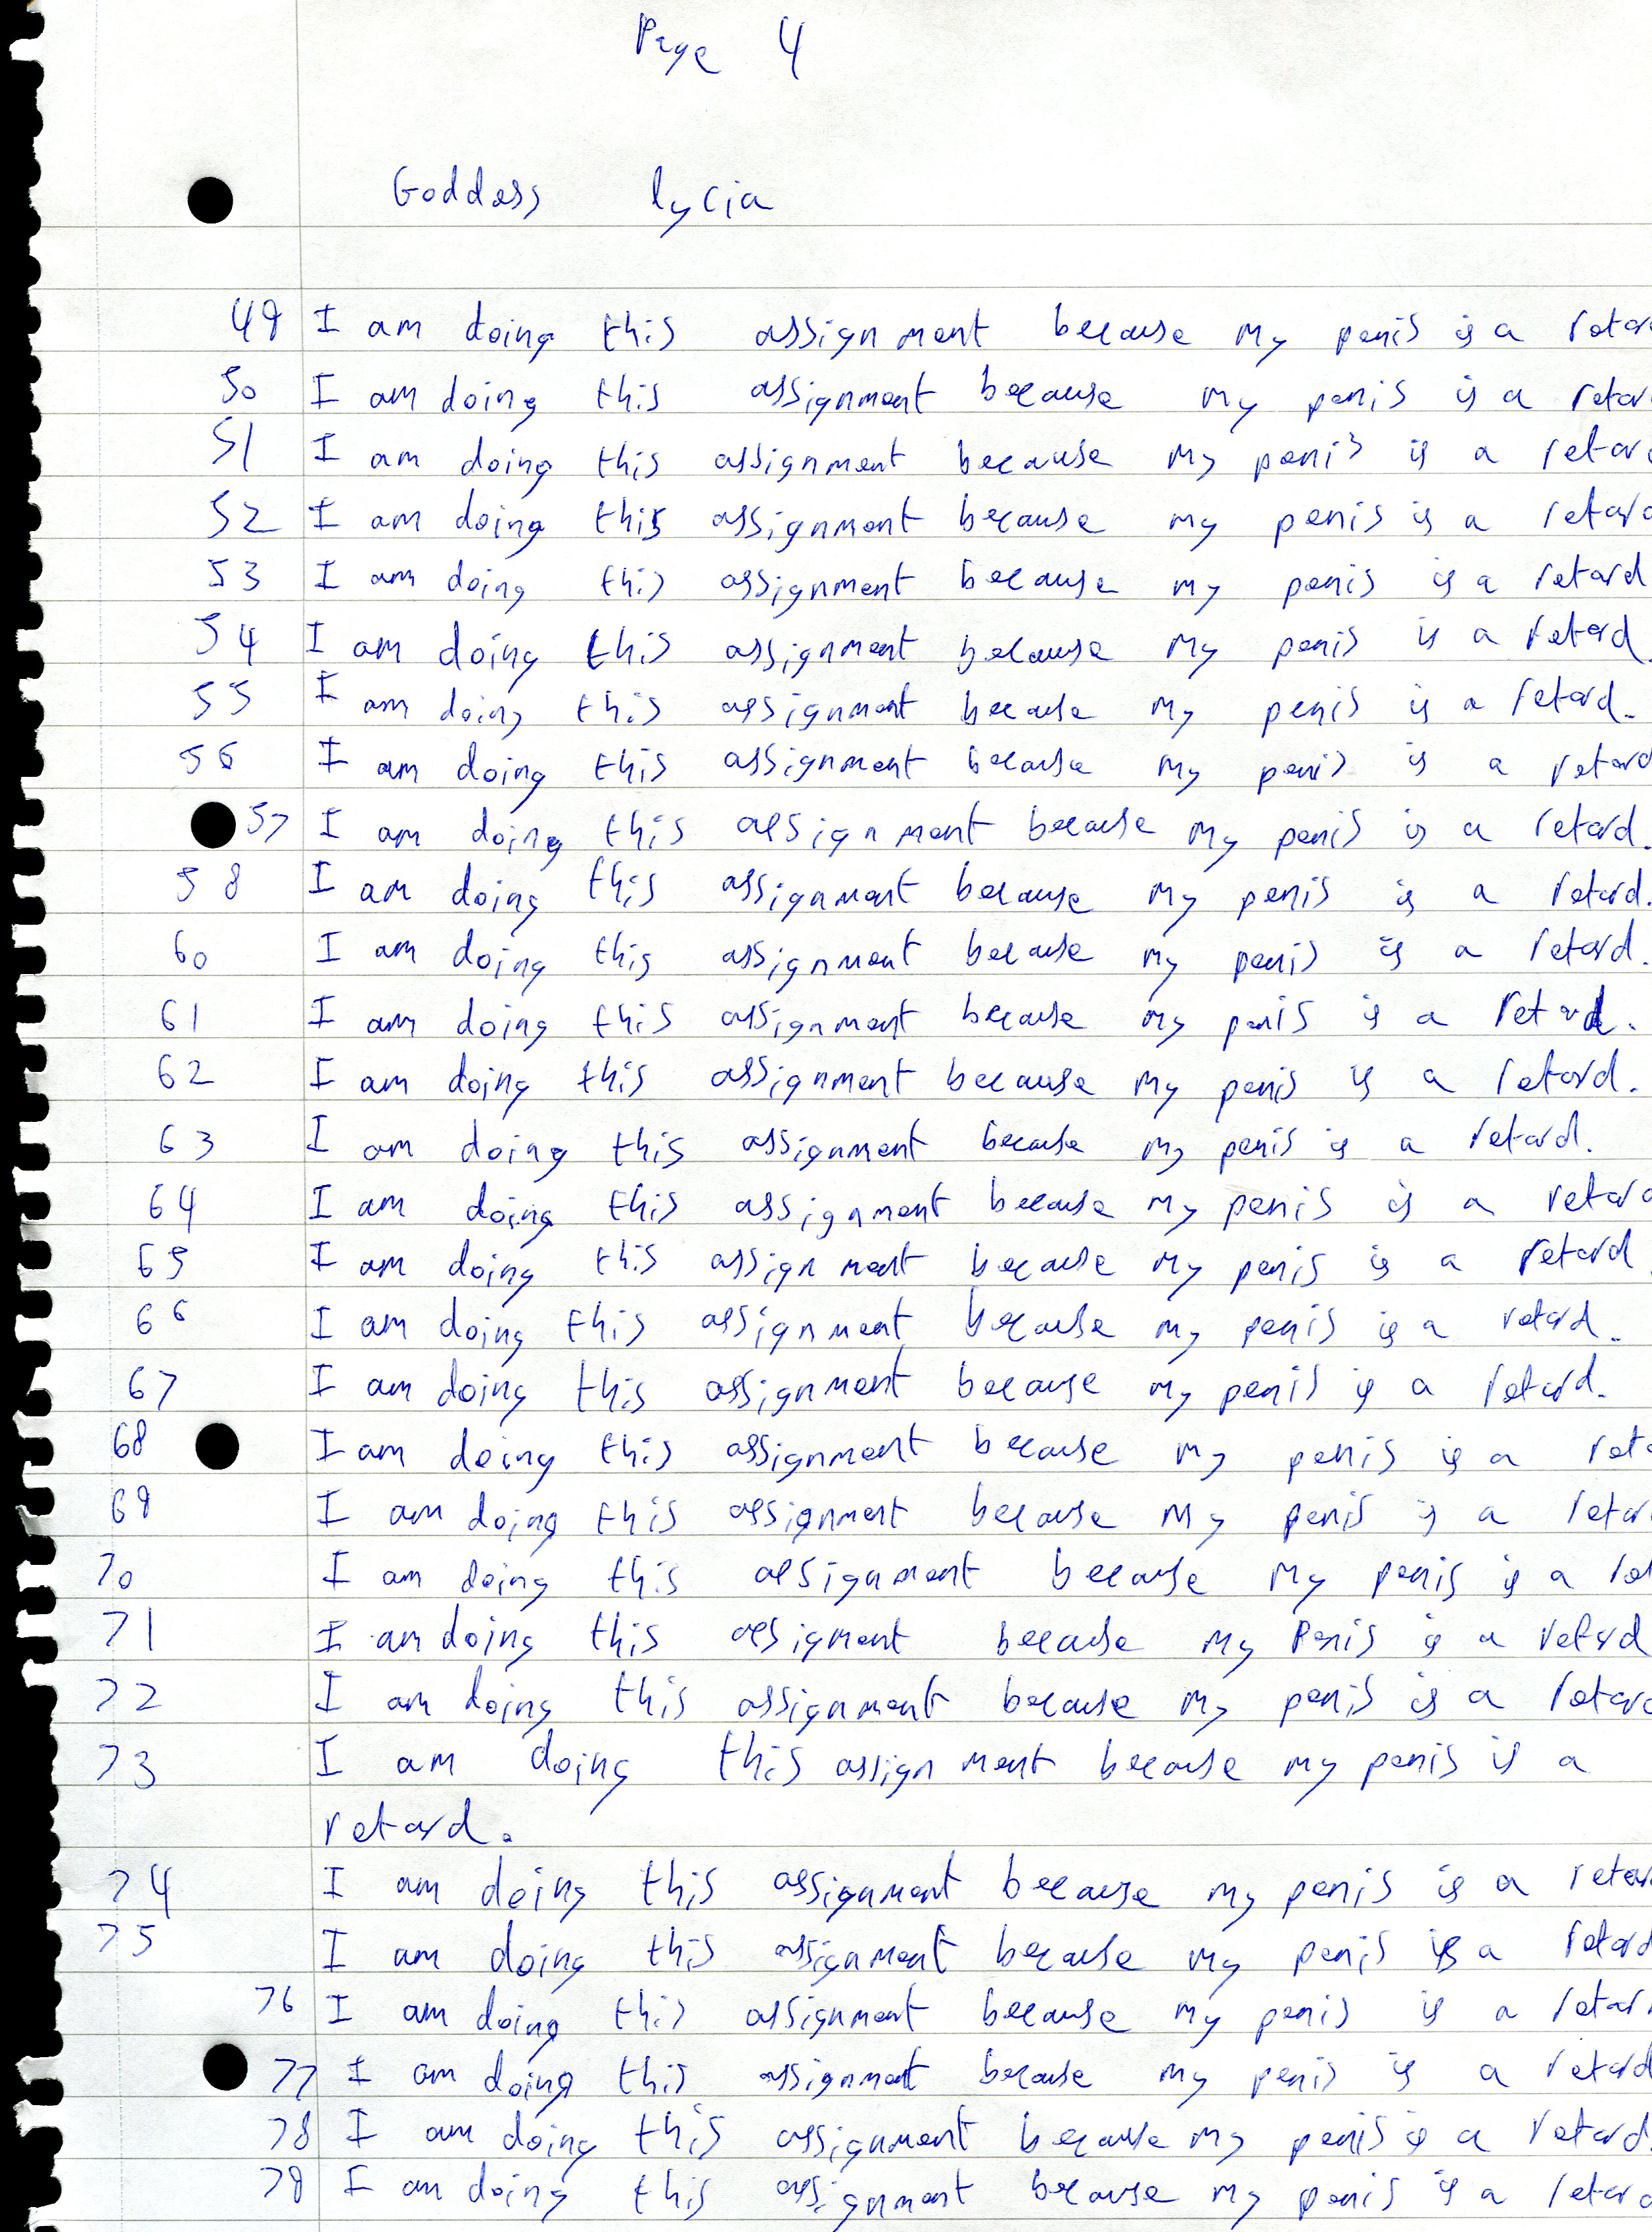 Page 4
Goddess lycia
49 I am doing this assignment because my penis is a retar
50 I am doing this assignment because my penis is a retar
51 I am doing this assignment because my penis is a retar
52 I am doing this assignment because my penis is a retard
53 I am doing this assignment because my penis is a retard
54 I am doing this assignment because my penis is a retard.
55 I am doing this assignment because my penis is a retard.
56 I am doing this assignment because my penis is a retard
57 I am doing this assignment because my penis is a retard.
58 I am doing this assignment because my penis is a retard.
60 I am doing this assignment because my penis is a retard.
61 I am doing this assignment because my penis is a retard.
62 I am doing this assignment because my penis is a retard.
63 I am doing this assignment because my penis is a retard.
64 I am doing this assignment because my penis is a retard
65 I am doing this assignment because my penis is a retard
66 I am doing this assignment because my penis is a retard.
67 I am doing this assignment because my penis is a retard.
68 I am doing this assignment because my penis is a ret
69 I am doing this assignment because my penis is a retar
70 I am doing this assignment because my penis is a ret
71 I am doing this assigment because my Penis is a retard
72 I am doing this assignment because my penis is a retard
73 I am doing this assignment because my penis is a
retard.
74 I am doing this assignment because my penis is a retar
75 I am doing this assignment because my penis is a retard
76 I am doing this assignment because my penis is a retar
77 I am doing this assignment because my penis is a retard
78 I am doing this assignment because my penis is a retard
79 I am doing this assignment because my penis is a retard